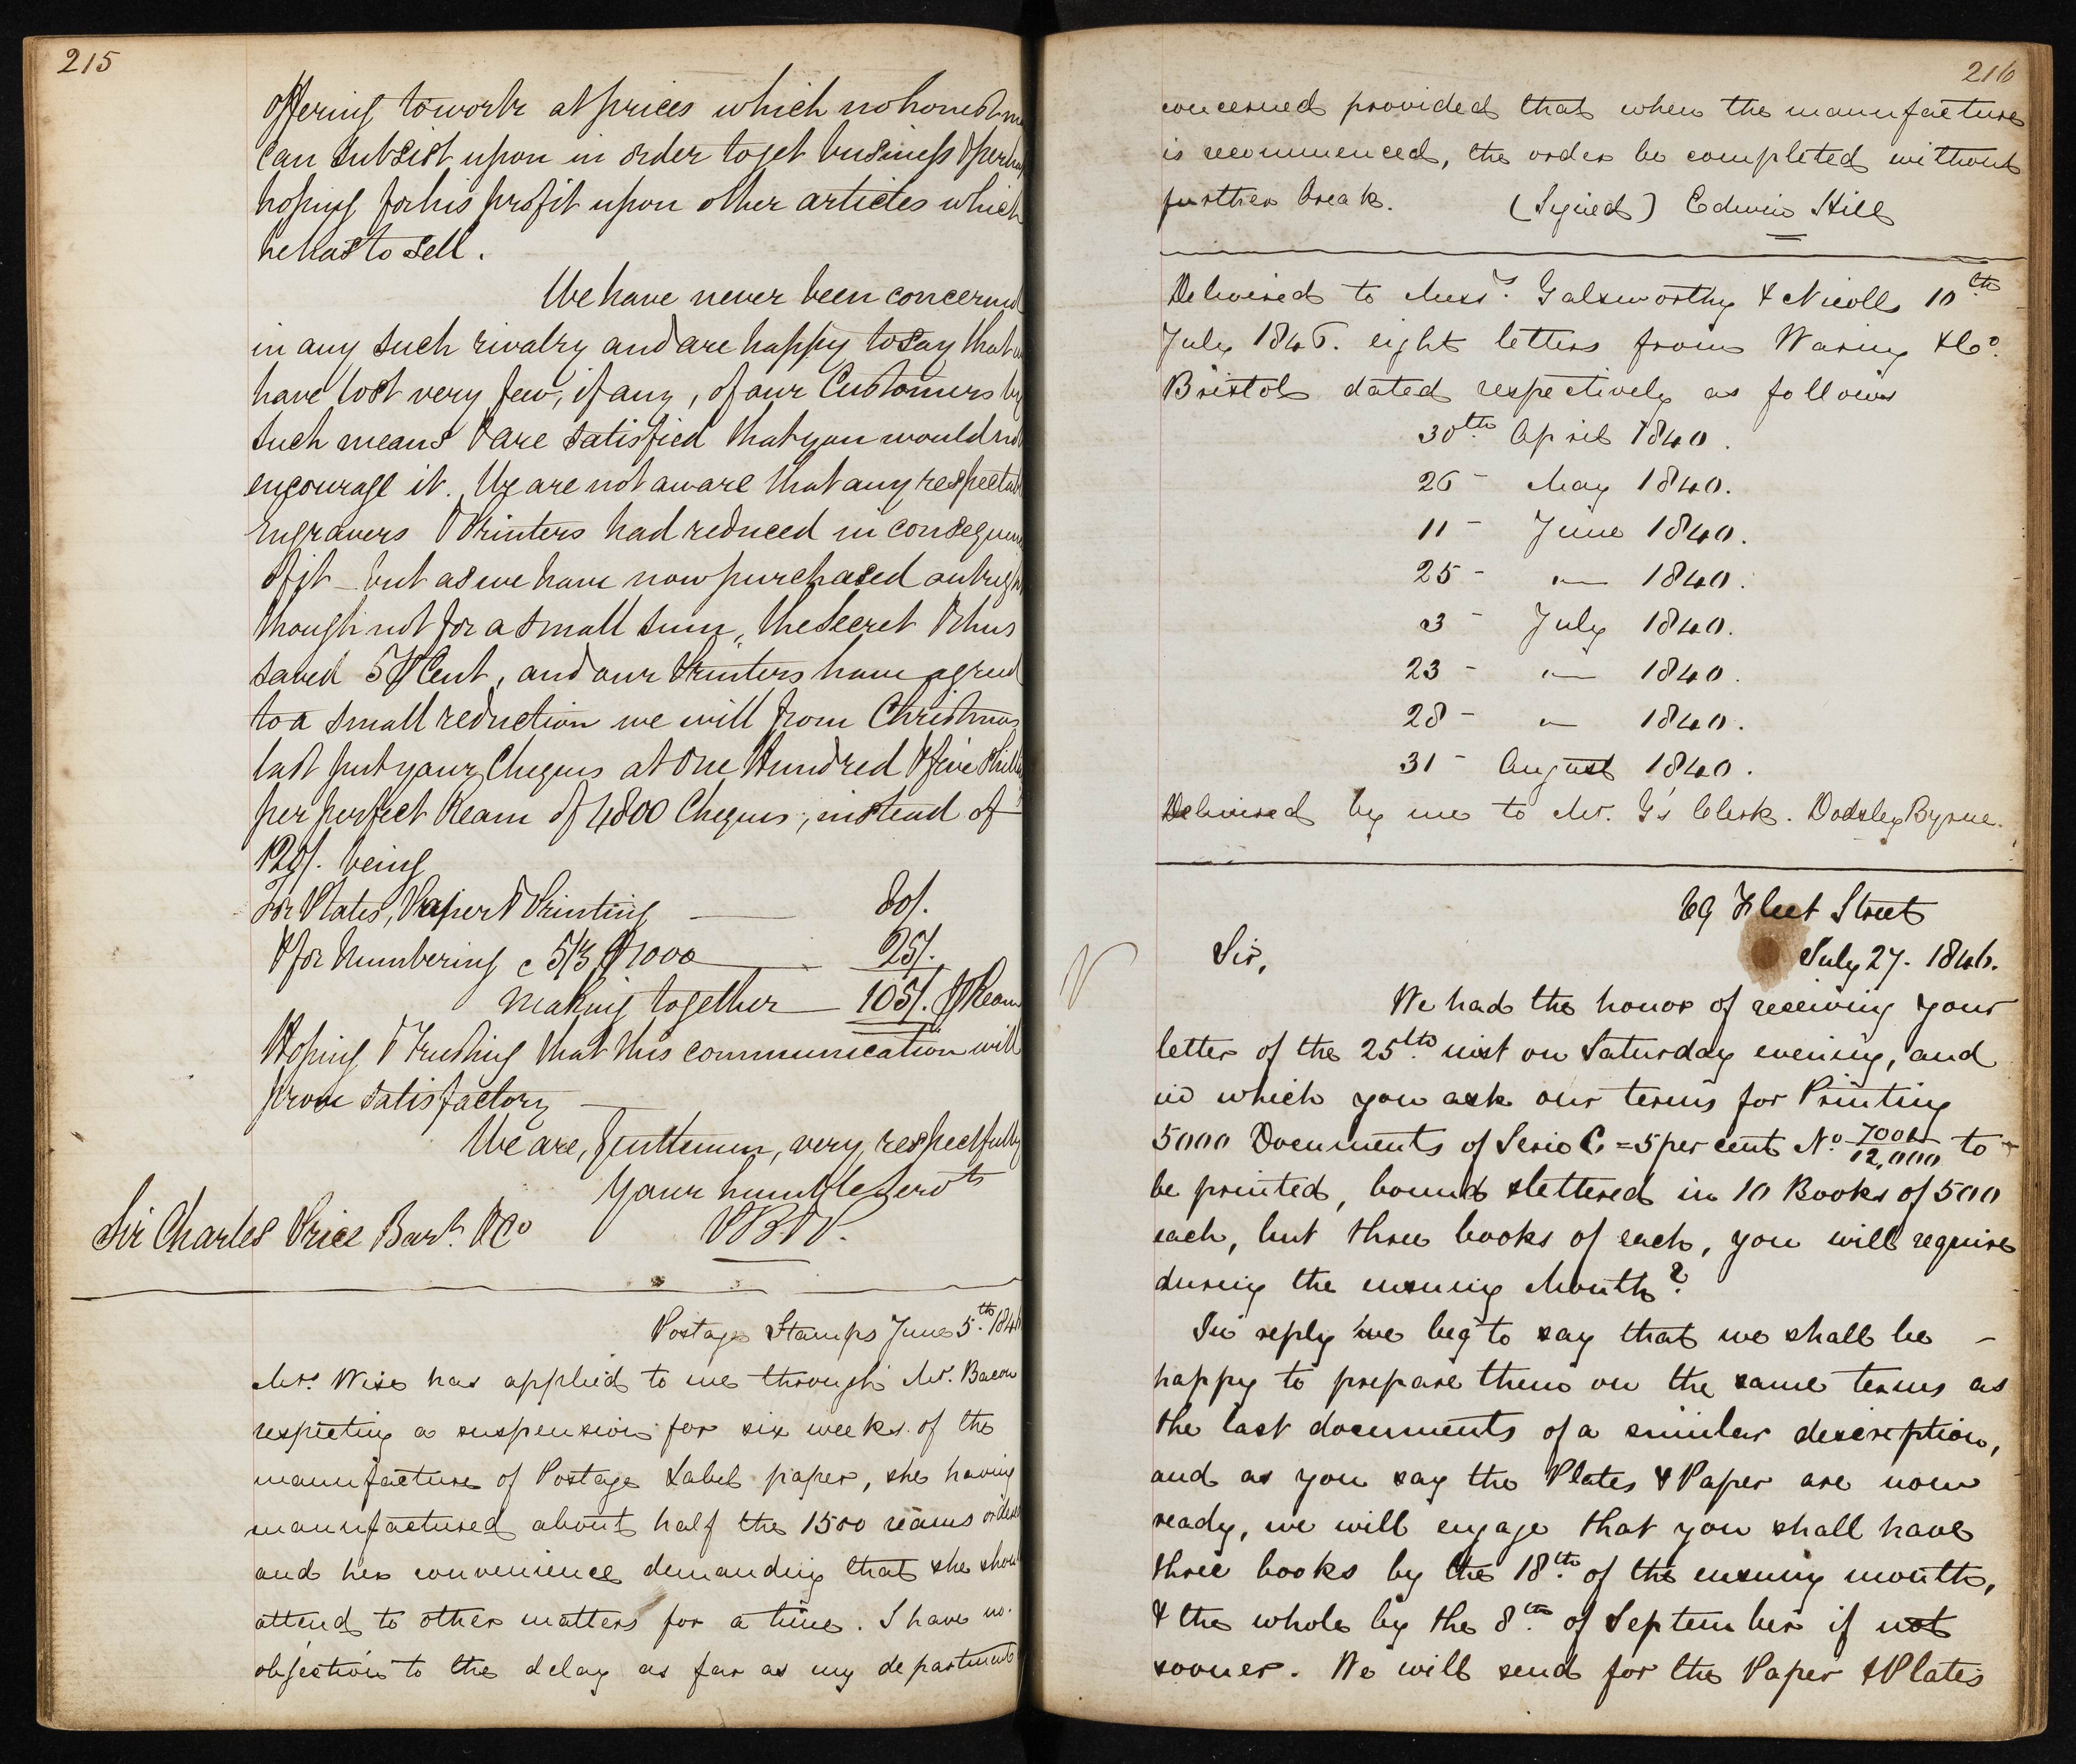 215
offering to work at prices which no honest
can subsist upon in order to get business &
hoping for his profit upon other articles which
he has to sell.
We have never been concerned
in any such rivalry and are happy to say that
have lost very few, if any, of our Customers by
such means & are satisfied that you would not
encourage it. We are not aware that any
Engravers & Printers had reduced in
of it – but as we have now purchased
though not for a small sum, the secret & thus
saved 5 ⅌ Cent, and our Printers have agreed
to a small reduction we will from Christmas
last put your Cheques at One Hundred & five
per perfect Ream of 4800 Cheques, instead of
120/. being
For Plates, Paper & Printing — 80/.
& for Numbering @ 5/3 ⅌ 1000 — 25/.
Making together — 105/. ⅌ Ream
Hoping & Trusting that this communication will
prove satisfactory —
We are, Gentlemen, very respectfully
Your humble Servts
PB&P.
Sir Charles Price Bart. & Co
Postage Stamps June 5th 184
Mrs. Wise has applied to me through Mr. Bacon
respecting a suspension for six weeks of the
manufacture of Postage Label paper, she having
manufactured about half the 1500 reams
and her convenience demanding that she
attend to other matters for a time. I have no
objection to the delay as far as my department
216
concerned provided that when the manufacture
is recommenced, the order be completed without
further break. (Signed) Edwin Hill
Delivered to Messrs. Galsworthy & Nicolls 10th
July 1846. eight letters from Waring & Co.
Bristol dated respectively as follows
30th April 1840.
26 - May 1840.
11 - June 1840.
25 - " 1840.
3 - July 1840.
23 - " 1840.
28 - " 1840.
31 - August 1840.
Delivered by me to Mr. G's Clerk. Dodsley Byrne.
69 Fleet Street
July 27. 1846.
Sir,
We had the honor of receiving your
letter of the 25th inst on Saturday evening, and
in which you ask our terms for Printing
5000 Documents of Serie C. = 5 per cent No. 7001/12,000 to
be printed, bound & lettered in 10 Books of 500
each, but three books of each, you will require
during the ensuing Month?
In reply we beg to say that we shall be –
happy to prepare them on the same terms as
the last documents of a similar description,
and as you say the Plates & Paper are now
ready, we will engage that you shall have
three books by the 18th of the ensuing month,
& the whole by the 8th of September if not
sooner. We will send for the Paper & Plates